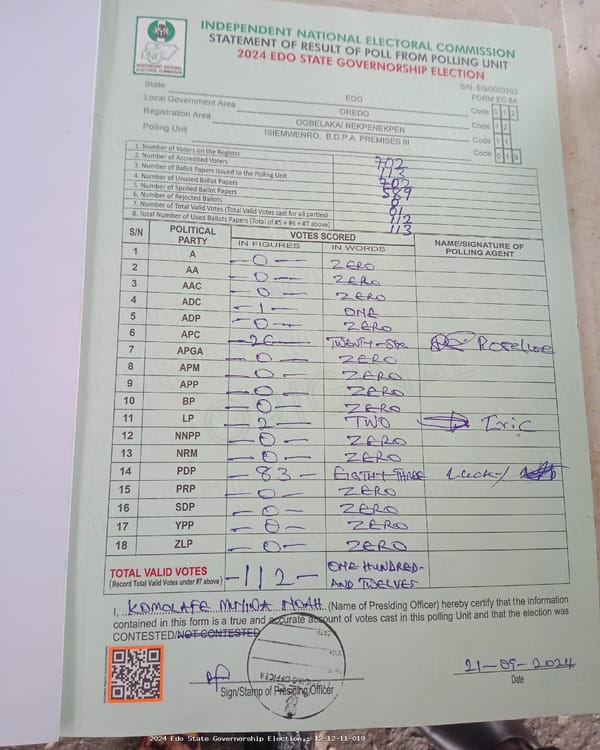 INDEPENDENT NATIONAL ELECTORAL COMMISSION
STATEMENT OF RESULT OF POLL FROM POLLING UNIT
2024 EDO STATE GOVERNORSHIP ELECTION
INDEPENDENT NATIONAL ELECTORAL COMMISSION
S/N: EG/0003203
FORM EC 8A
State EDO Code 0 1 2
Local Government Area OREDO Code 1 2
Registration Area OGBELAKA/ NEKPENEKPEN Code 1 1
Polling Unit ISIEMWENRO, B.D.P.A. PREMISES III Code 0 1 9
1. Number of Voters on the Register 702
2. Number of Accredited Voters 113
3. Number of Ballot Papers Issued to the Polling Unit 702
4. Number of Unused Ballot Papers 589
5. Number of Spoiled Ballot Papers 0
6. Number of Rejected Ballots 01
7. Number of Total Valid Votes (Total Valid Votes cast for all parties) 112
8. Total Number of Used Ballots Papers (Total of #5 + #6 + #7 above) 113
S/N POLITICAL PARTY VOTES SCORED NAME/SIGNATURE OF POLLING AGENT
IN FIGURES IN WORDS
1 A -0- ZERO
2 AA -0- ZERO
3 AAC -0- ZERO
4 ADC -1- ONE
5 ADP -0- ZERO
6 APC -26- TWENTY-SIX Roseline
7 APGA -0- ZERO
8 APM -0- ZERO
9 APP -0- ZERO
10 BP -0- ZERO
11 LP -2- TWO Eric
12 NNPP -0- ZERO
13 NRM -0- ZERO
14 PDP -83- EIGHTY-THREE Lucky
15 PRP -0- ZERO
16 SDP -0- ZERO
17 YPP -0- ZERO
18 ZLP -0- ZERO
TOTAL VALID VOTES -112- ONE HUNDRED-
(Record Total Valid Votes under #7 above) AND TWELVES
I, KOMOLAFE NOAH (Name of Presiding Officer) hereby certify that the information
contained in this form is a true and accurate account of votes cast in this polling Unit and that the election was
CONTESTED/NOT CONTESTED
PRESIDING OFFICER
21-09-2024
Sign/Stamp of Presiding Officer Date
2024 Edo State Governorship Election : 12-12-11-019